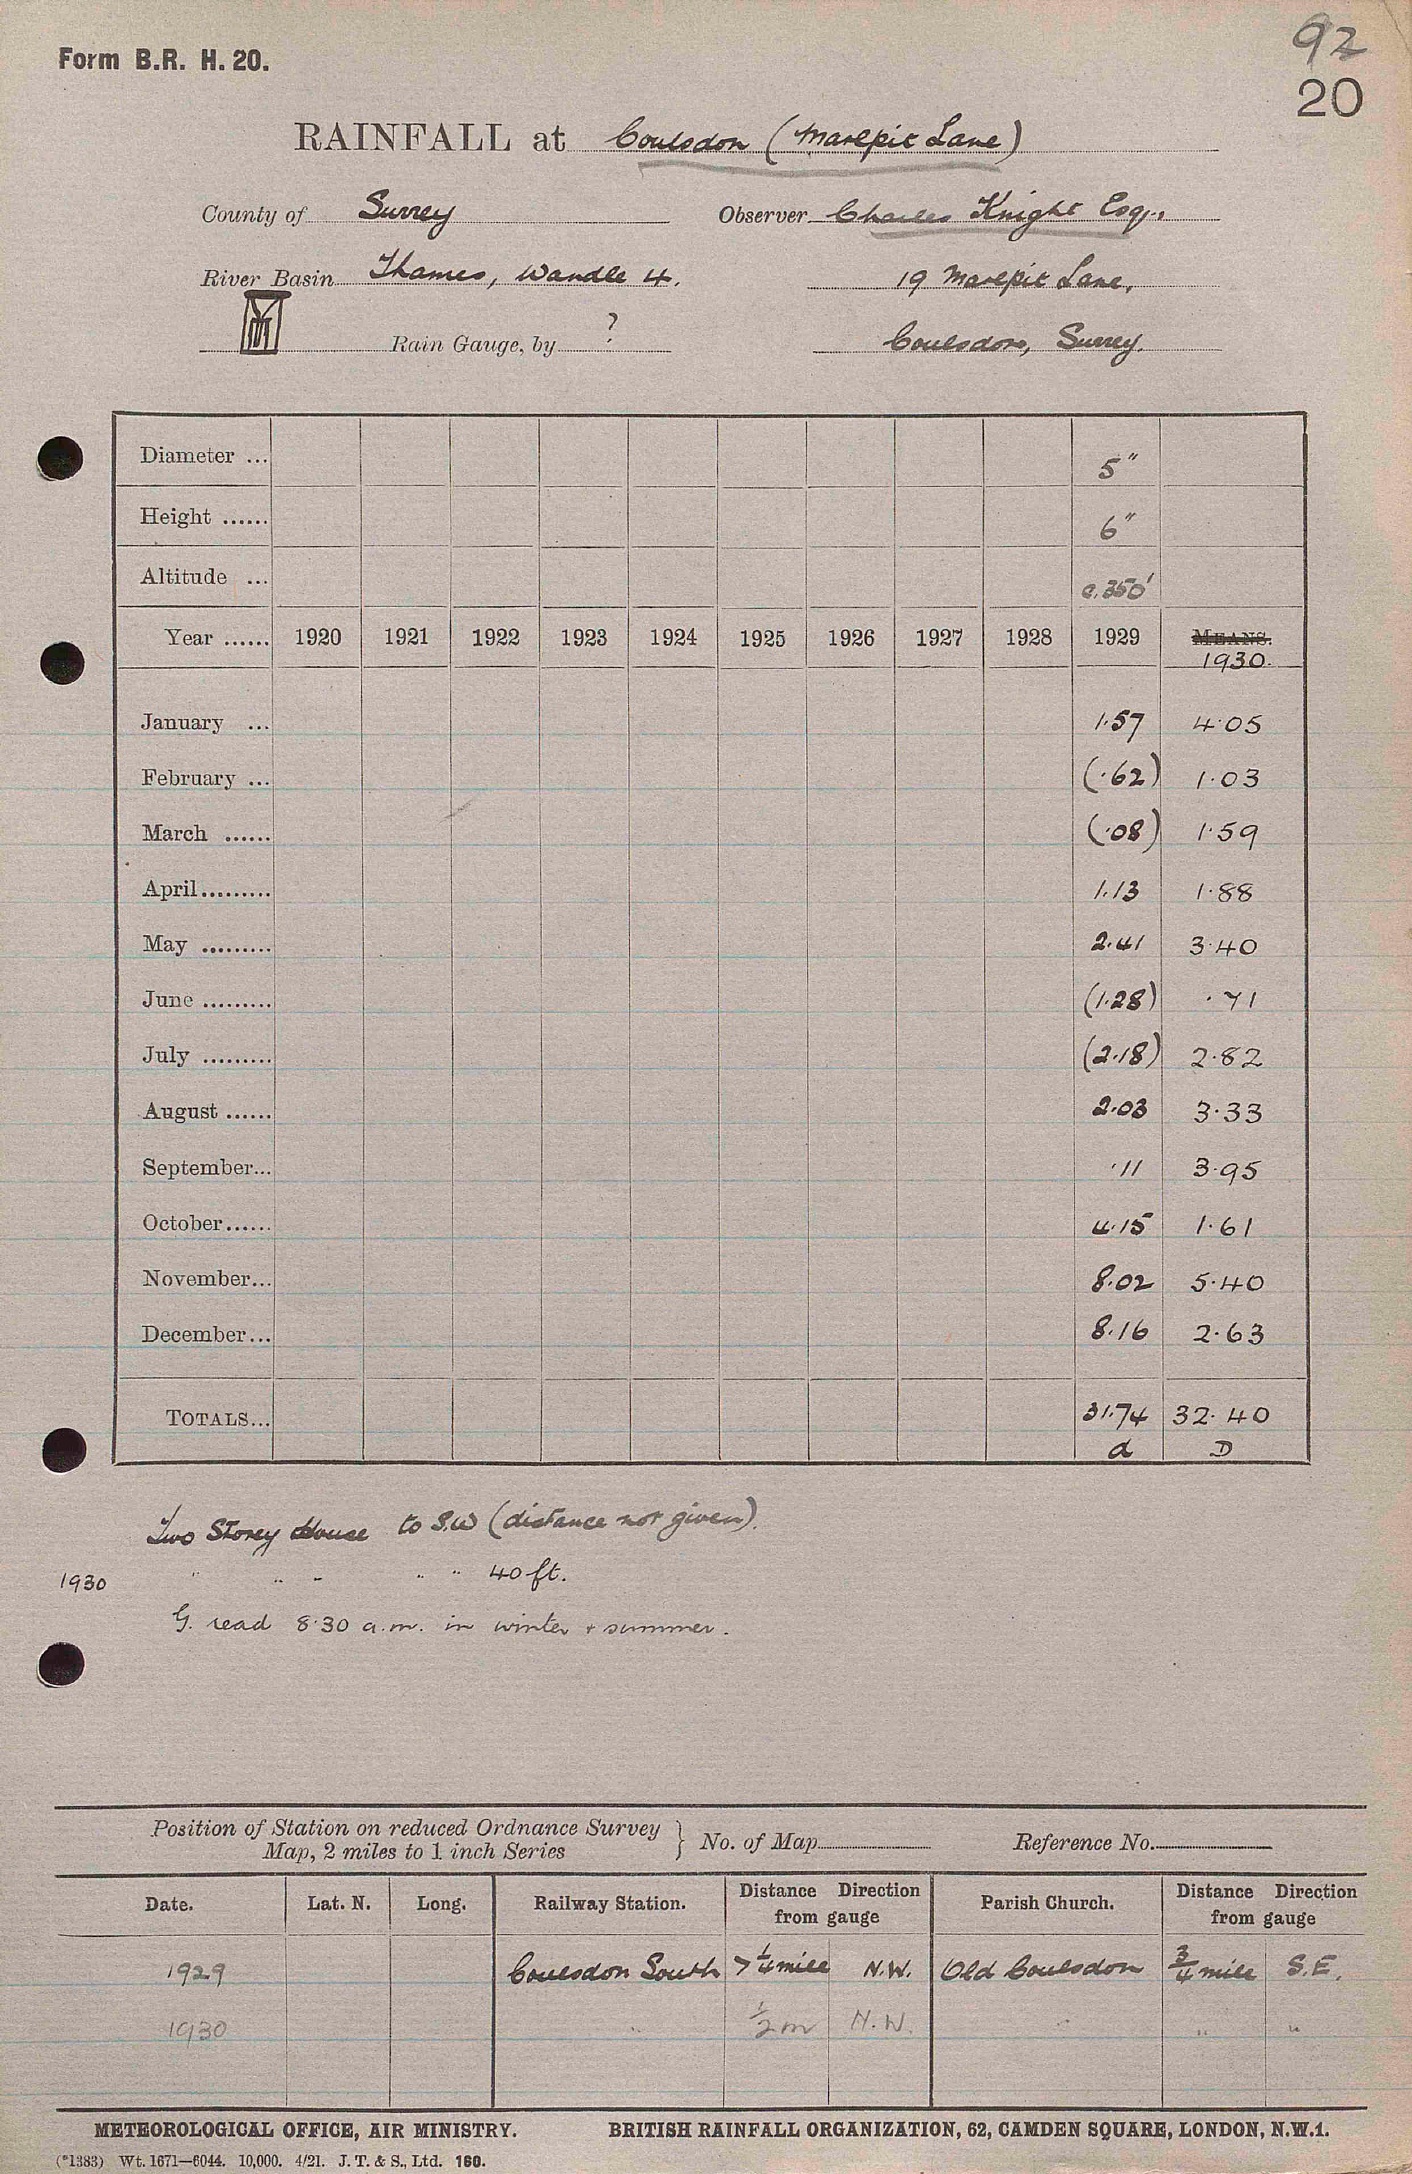 Form B.R. H. 20.
92
20
RAINFALL at Coulsdon (Marlpit Lane)
County of Surrey Observer Charles Knight Esq.,
River Basin Thames, Wandle 4. 19 Marlpit Lane,
Rain Gauge, by ? Coulsdon, Surrey.
Diameter ... 5"
Height ...... 6"
Altitude ... c.350'
Year ...... 1920 1921 1922 1923 1924 1925 1926 1927 1928 1929 MEANS.
1930.
January ... 1.57 4.05
February ... (.62) 1.03
March ...... (.08) 1.59
April......... 1.13 1.88
May ......... 2.41 3.40
June ......... (1.28) .71
July ......... (2.18) 2.82
August ...... 2.03 3.33
September... .11 3.95
October...... 4.15 1.61
November... 8.02 5.40
December... 8.16 2.63
TOTALS... 31.74 32.40
d D
Two Storey House to S.W (distance not given).
1930 " " " " " 40 ft.
G. read 8.30 a.m. in winter + summer.
Position of Station on reduced Ordnance Survey
Map, 2 miles to 1 inch Series } No. of Map Reference No.
Date. Lat. N. Long. Railway Station. Distance Direction from gauge Parish Church. Distance Direction from gauge
1929 Coulsdon South >1/4 mile N.W. Old Coulsdon 3/4 mile S.E.
1930 " 1/2 m N.W. " " "
METEOROLOGICAL OFFICE, AIR MINISTRY. BRITISH RAINFALL ORGANIZATION, 62, CAMDEN SQUARE, LONDON, N.W.1.
(*1383) Wt. 1671—6044. 10,000. 4/21. J. T. & S., Ltd. 160.